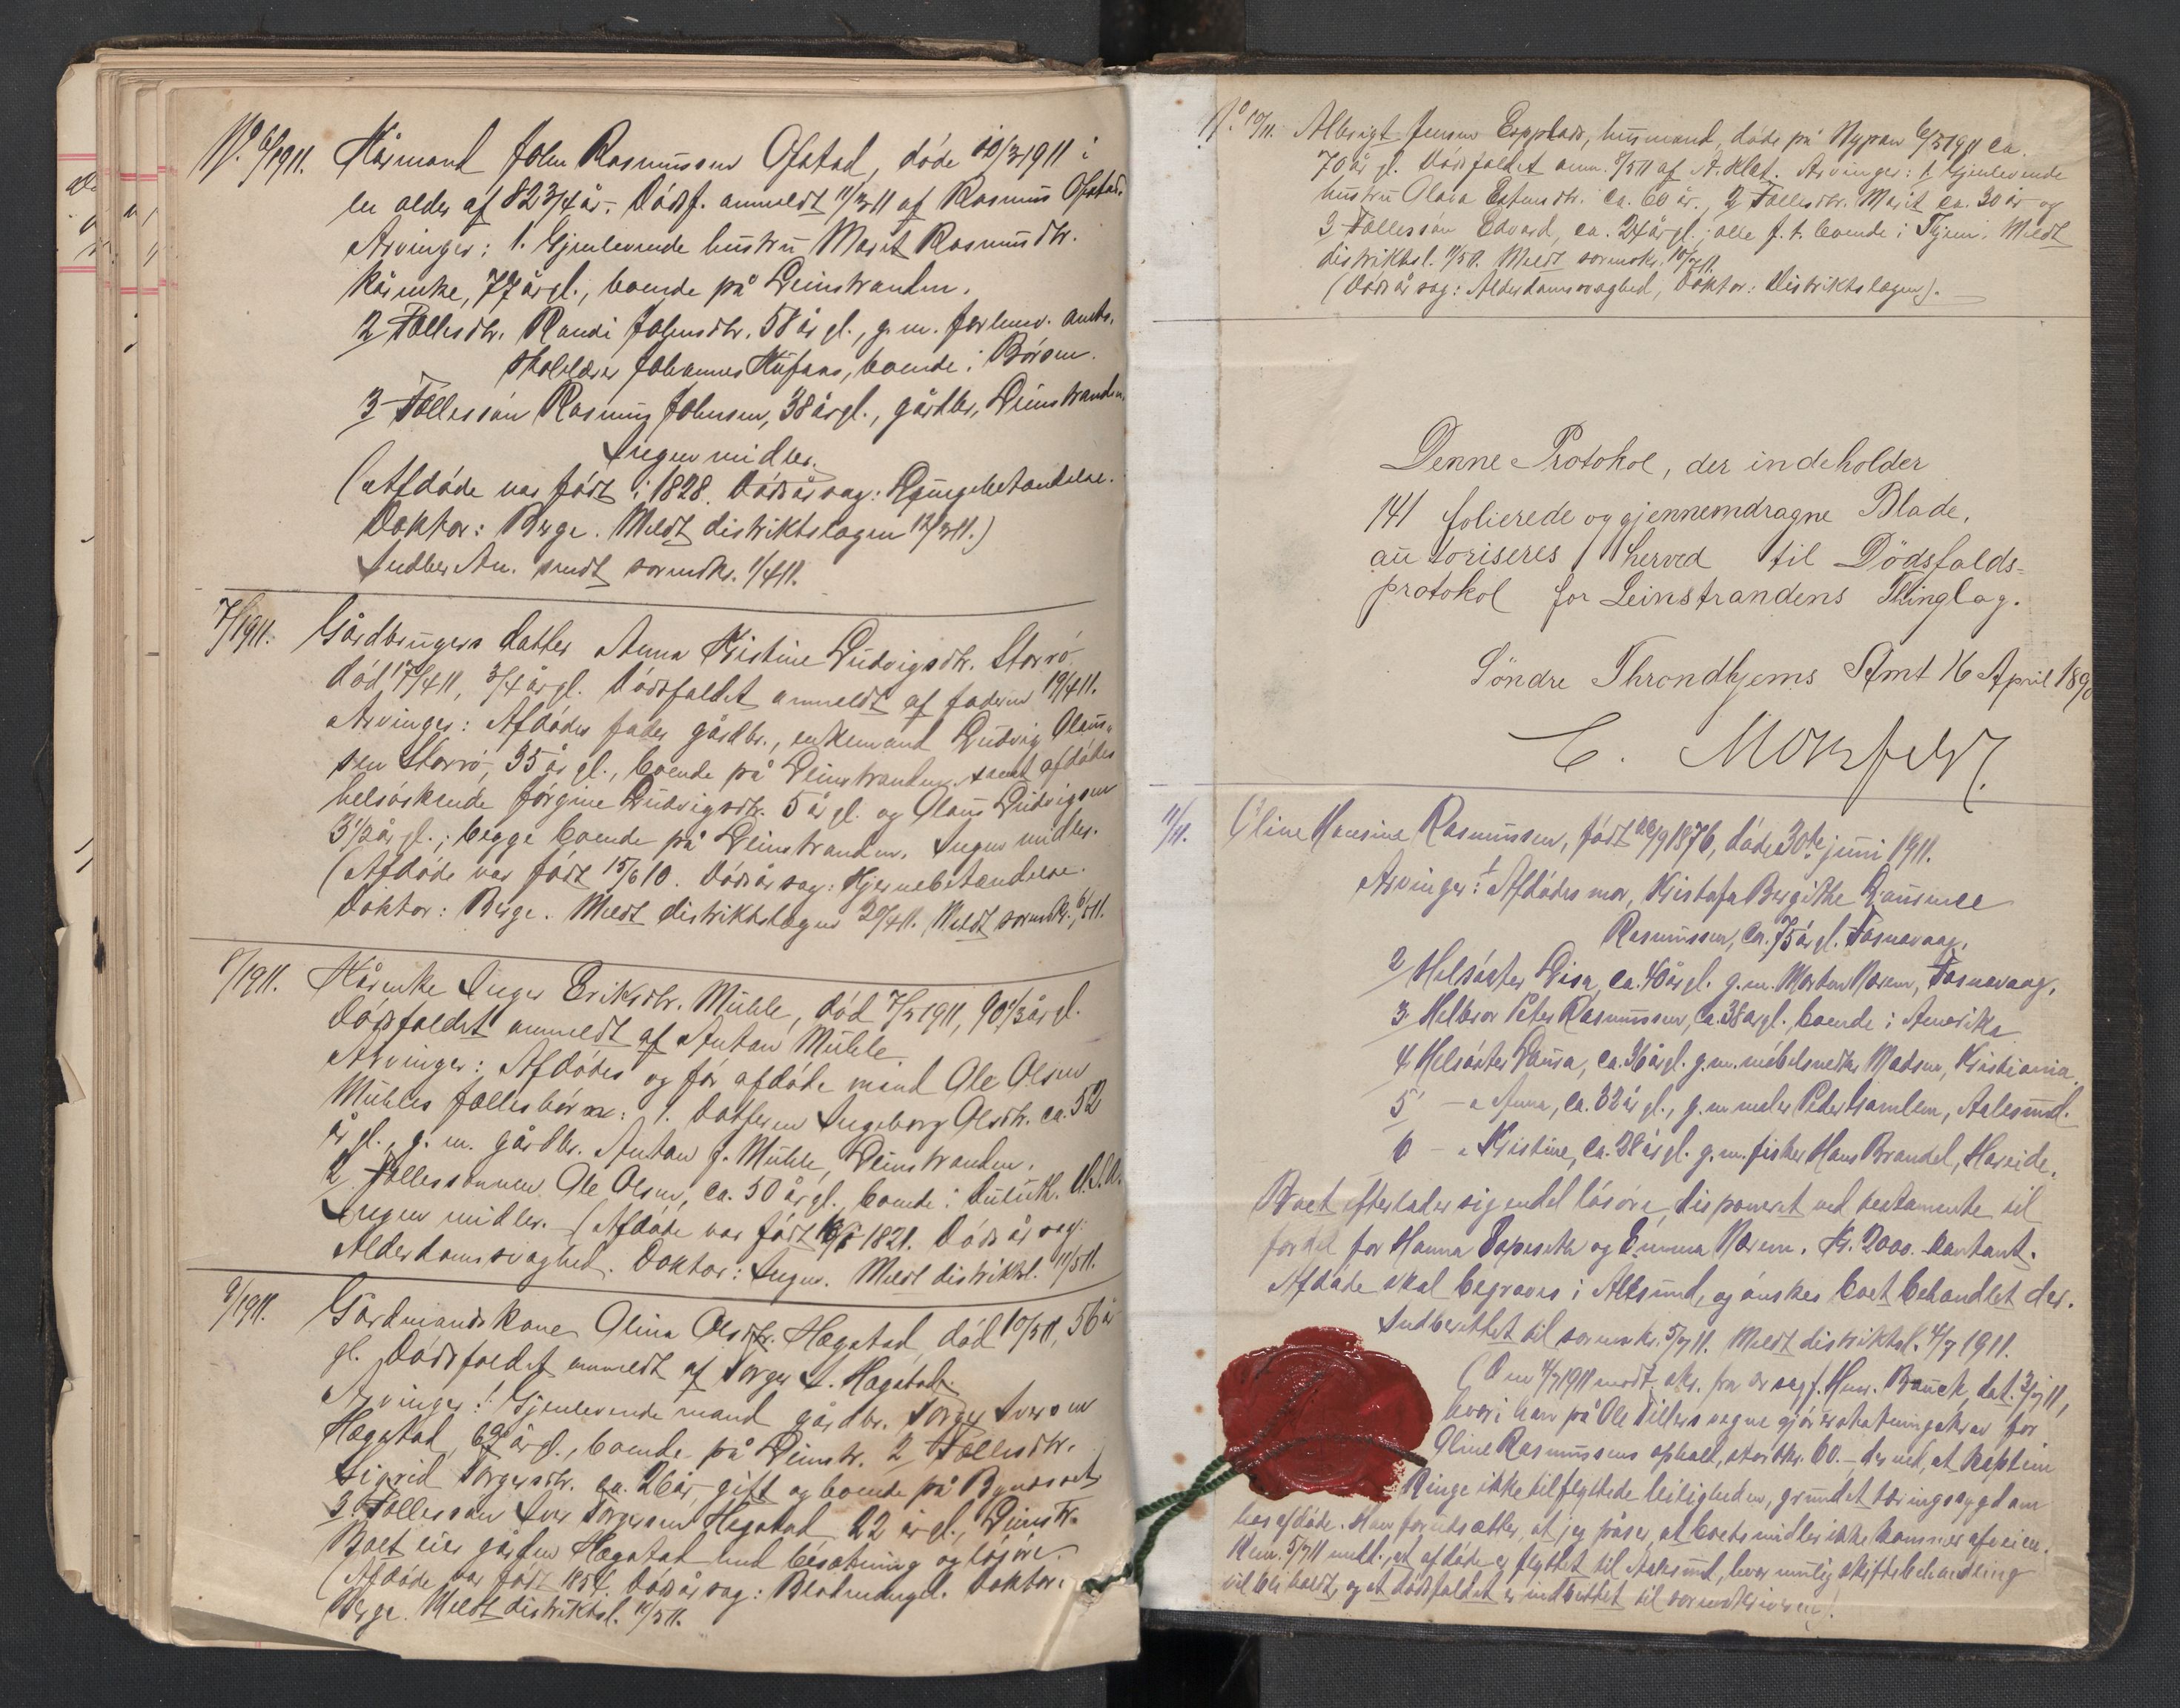 No. 6/1911. Kårmand John Rasmussen Ofstad, døde 10/3 1911 i
en alder af 82 3/4 år. Dødsf. anmeldt 11/3 11 af Rasmus Ofstad.
Arvinger: 1. Gjenlevende hustru Marit Rasmusdtr.
kårenke, 77 år gl., boende på Leinstranden.
2 Fællesdtr. Randi Johnsdtr. 58 år gl., g. m. forhenv. amts-
skolelærer Johannes Hufaas, boende i Børsen.
3 Fællessøn Rasmus Johnsen, 38 år gl., gårdbr., Leinstranden.
Ingen midler.
(Afdøde var født i 1828. Dødsårsag: Lungebetændelse.
Doktor: Berge. Meldt distriktslægen 12/3 11.)
Indberetn. sendt sorenskr. 1/4 11.
7/1911. Gårdbrugers datter Anna Kristine Ludvigsdtr. Storrø
død 17/4 11, 3/4 år gl. Dødsfaldet anmeldt af faderen 19/4 11.
Arvinger: Afdødes fader gårdbr., enkemand Ludvig Olaus-
sen Storrø, 35 år gl., boende på Leinstranden samt afdødes
helsøskende Jørgine Ludvigsdtr. 5 år gl. og Olaus Ludvigsen
3 1/2 år gl.; begge boende på Leinstranden. Ingen midler.
(Afdøde var født 15/6 10. Dødsårsag: Hjernebetændelse.
Doktor: Berge. Meldt distriktslægen 20/4 11. Meldt sorenskr. 6/5 11.
8/1911. Kårenke Inger Eriksdtr. Muhle, død 7/5 1911, 90 1/3 år gl.
Dødsfaldet anmeldt af Anton Muhle
Arvinger: Afdødes og før afdøde mand Ole Olsen
Muhles fællesbørn: 1. Datteren Ingeborg Olsdtr. ca. 52
år gl., g. m. gårdbr. Anton J. Muhle, Leinstranden.
2 Fællessønnen Ole Olsen, ca. 50 år gl., boende i Duluth. U.S.A.
Ingen midler. (Afdøde var født 1821. Dødsårsag:
Alderdomssvaghed. Doktor: Ingen. Meldt distriktsl. 11/5 11.
9/1911. Gårdmandskone Olina Olsdtr. Hægstad, død 10/5 11, 56 år
gl. Dødsfaldet anmeldt af Torger I. Hægstad.
Arvinger: 1 Gjenlevende mand gårdbr. Torger Iversen
Hægstad, år gl., boende på Leinstr. 2 Fællesdtr.
Sigrid Torgersdtr. ca. 26 år, gift og boende på Byneset
3 Fællessøn Iver Torgersen Hegstad 22 år gl., Leinstr.
Boet eier gården Hægstad med besætning og løsøre.
(Afdøde var født 1854. Dødsårsag: Doktor:
Berge. Meldt distriktsl. 11/5 11.
No. 10/11. Albrigt Jensen Espplads, husmand, døde på Nypan 6/5 1911 ca.
70 år gl. Dødsfaldet anm. 8/5 11 af A. Klet. Arvinger: 1. Gjenlevende
hustru Olava Estensdtr. ca. 60 år., 2 Fællesdtr. Marit ca. 30 år og
3 Fællessøn Edvard, ca. 24 år gl., alle f. t. boende i Meldt
distriktsl. 11/5 11. Meldt sorenskr. 10/7 11.
(Dødsårsag: Alderdomssvaghed, Doktor: Distriktslægen).
Denne Protokol, der indeholder
141 folierede og gjennemdragne Blade,
autoriseres herved til Dödsfalds-
protokol for Leinstrandens Thinglag.
Söndre Throndhjems Amt 16 April 1890
C. Motzfeldt.
11/11. Oline Hansine Rasmussen, født 20/9 1876, døde 30te juni 1911.
Arvinger: 1 Afdødes mor, Kristofa Bergitte
Rasmussen, ca. 75 år gl. Fosnavaag.
2 Helsøster Lisa, ca. 40 år gl. g. m. Morten Notøen, Fosnavaag.
3. Helbror Peter Rasmussen, ca. 38 år gl. boende i Amerika
4 Helsøster Laura, ca. 36 år gl. g. m. møbelsnedker Madsen, Kristiania.
5 — " Anna, ca. 32 år gl., g. m. maler Peder Gamlem, Aalesund.
6 — " Kristine, ca. 28 år gl. g. m. fisker Hans Brandal, Hareide.
Boet efterlader sig endel løsøre, disponeret ved testamente til
fordel for Hanna og Emma Kr. 2000. kontant.
Afdøde skal begraves i Aalesund, og ønskes boet behandlet der.
Indberettet til sorenskr. 5/7 11. Meldt distriktsl. 4/7 1911.
(Den 4/7 1911 modt. skr. fra o. r. sagf. Henr. Bauck, dat. 3/7 11,
hvori han på Ole Tillers vegne gjør erstatningskrav for
Oline Rasmussens ophold, stort kr. 60. – derved, at kaptein
Ringe ikke tilflyttede leiligheden, grundet tæringssygdom
hos afdøde. Han forudsætter, at jeg påser, at boets midler ikke kommer af veien.
Henr. 5/7 11 medt., at afdøde er flyttet til Aalesund, hvor mulig skiftebehandling
vil bli holdt, og at dødsfaldet er indberettet til sorenskriveren.